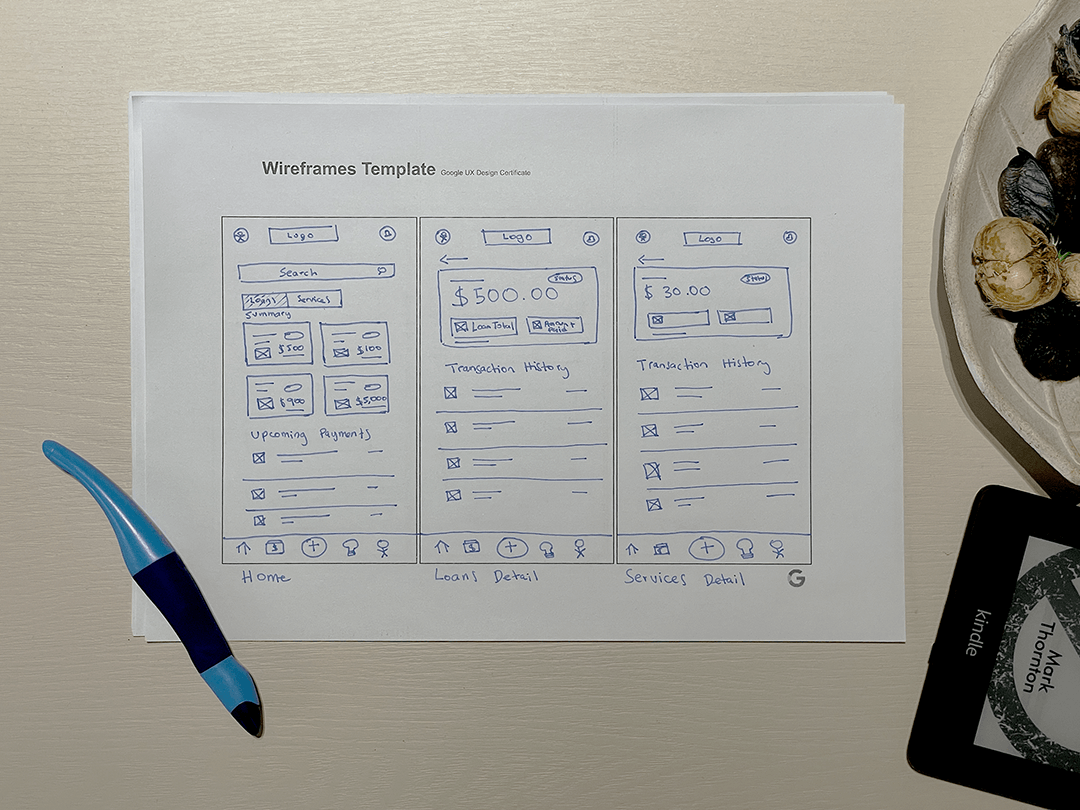 Wireframes Template Google UX Design Certificate
Logo
Search
Loans Services
Summary
$500 $100
$900 $5,000
Upcoming Payments
Home
Logo
Status
$500.00
Loan Total
Amount Paid
Transaction History
Loans Detail
Logo
Status
$ 30.00
Transaction History
Services Detail
G
kindle
Mark
Thornton